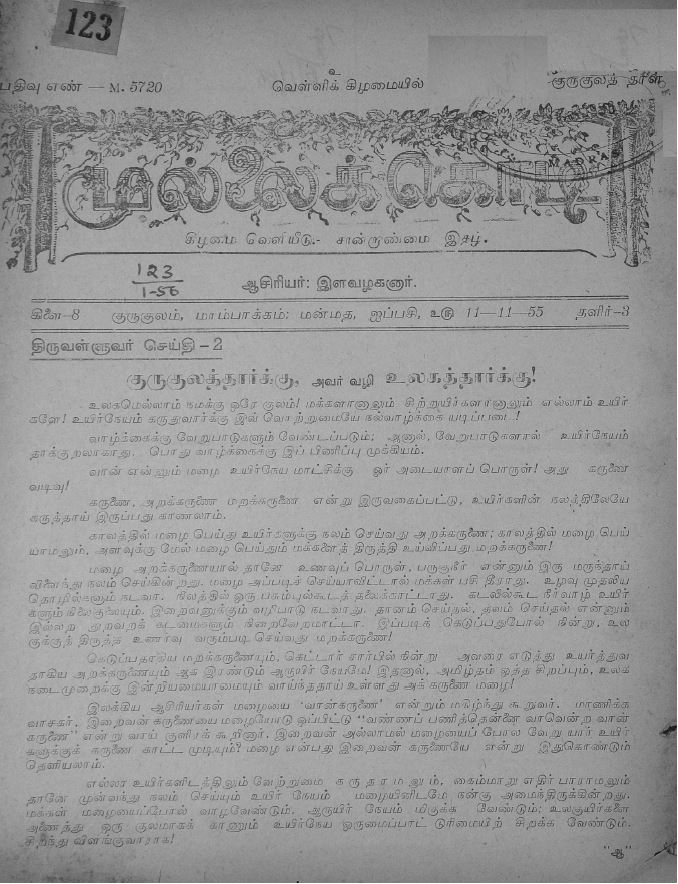 123
உ
பதிவு எண் — M. 5720 வெள்ளிக் கிழமையில் குருகுலத்
MADRAS
முல்லைக்கொடி
கிழமை வெளியீடு:- சான்றாண்மை இதழ்.
123
1-56
ஆசிரியர்: இளவழகனார்.
கிளை-8 குருகுலம், மாம்பாக்கம்: மன்மத, ஐப்பசி, உரு 11—11—55 தளிர்-3
திருவள்ளுவர் செய்தி -2
குருகுலத்தார்க்கு, அவர் வழி உலகத்தார்க்கு!
உலகமெல்லாம் நமக்கு ஒரே குலம்! மக்களானாலும் சிற்றுயிர்களானாலும் எல்லாம் உயிர்
களே! உயிர்நேயம் கருதுவார்க்கு இவ் வொற்றுமையே நல்வாழ்க்கை யடிப்படை!
வாழ்க்கைக்கு வேறுபாடுகளும் வேண்டப்படும்; ஆனால், வேறுபாடுகளால் உயிர்நேயம்
தாக்குறலாகாது. பொது வாழ்க்கைக்கு இப் பிணிப்பு முக்கியம்.
வான் என்னும் மழை உயிர்நேய மாட்சிக்கு ஓர் அடையாளப் பொருள்! அது கருணை
வடிவு!
கருணை, அறக்கருணை மறக்கருணை என்று இருவகைப்பட்டு, உயிர்களின் நலத்திலேயே
கருத்தாய் இருப்பது காணலாம்.
காலத்தில் மழை பெய்து உயிர்களுக்கு நலம் செய்வது அறக்கருணை; காலத்தில் மழை பெய்
யாமலும், அளவுக்கு மேல் மழை பெய்தும் மக்களைத் திருத்தி உய்விப்பது மறக்கருணை!
மழை அறக்கருணையால் தானே உணவுப் பொருள், பருகுநீர் என்னும் இரு மருந்தாய்
விளைந்து நலம் செய்கின்றது. மழை அப்படிச் செய்யாவிட்டால் மக்கள் பசி தீராது. உழவு முதலிய
தொழில்களும் நடவா. நிலத்தில் ஒரு பசும்புல்கூடத் தலைகாட்டாது. கடலில்கூட நீர்வாழ் உயிர்
களும் நிலைகுலையும். இறைவனுக்கும் வழிபாடு நடவாது. தானம் செய்தல், தவம் செய்தல் என்னும்
இல்லற துறவறக் கடமைகளும் நிறைவேறமாட்டா. இப்படிக் கெடுப்பதுபோல் நின்று, உல
குக்குத் திருந்த உணர்வு வரும்படி செய்வது மறக்கருணை!
கெடுப்பதாகிய மறக்கருணையும், கெட்டார் சார்பில் நின்று அவரை எடுத்து உயர்த்துவ
தாகிய அறக்கருணையும் ஆக இரண்டும் ஆருயிர் நேயமே! இதனால், அமிழ்தம் ஒத்த சிறப்பும், உலக
நடைமுறைக்கு இன்றியமையாமையும் வாய்ந்ததாய் உள்ளது அக் கருணை மழை!
இலக்கிய ஆசிரியர்கள் மழையை 'வான்கருணை' என்றும் மகிழ்ந்து கூறுவர். மாணிக்க
வாசகர், இறைவன் கருணையை மழையோடு ஒப்பிட்டு "வண்ணப் பணித்தென்னை வாவென்ற வான்
கருணை" என்று வாய் குளிரக் கூறினார். இறைவன் அல்லாமல் மழையைப் போல வேறு யார் உயிர்
களுக்குக் கருணை காட்ட முடியும்? மழை என்பது இறைவன் கருணையே என்று இதுகொண்டும்
தெளியலாம்.
எல்லா உயிர்களிடத்திலும் வேற்றுமை கருதாமலும், கைம்மாறு எதிர் பாராமலும்
தானே முன்வந்து நலம் செய்யும் உயிர் நேயம் மழையினிடமே நன்கு அமைந்திருக்கின்றது.
மக்கள் மழையைப்போல் வாழவேண்டும். ஆருயிர் நேயம் மிகுக்க வேண்டும்; உலகுயிர்களை
அணைத்து ஒரு குலமாகக் காணும் உயிர்நேய ஒருமைப்பாட் டுரிமையிற் சிறக்க வேண்டும்.
சிறந்து விளங்குவாராக!
"ஆ"